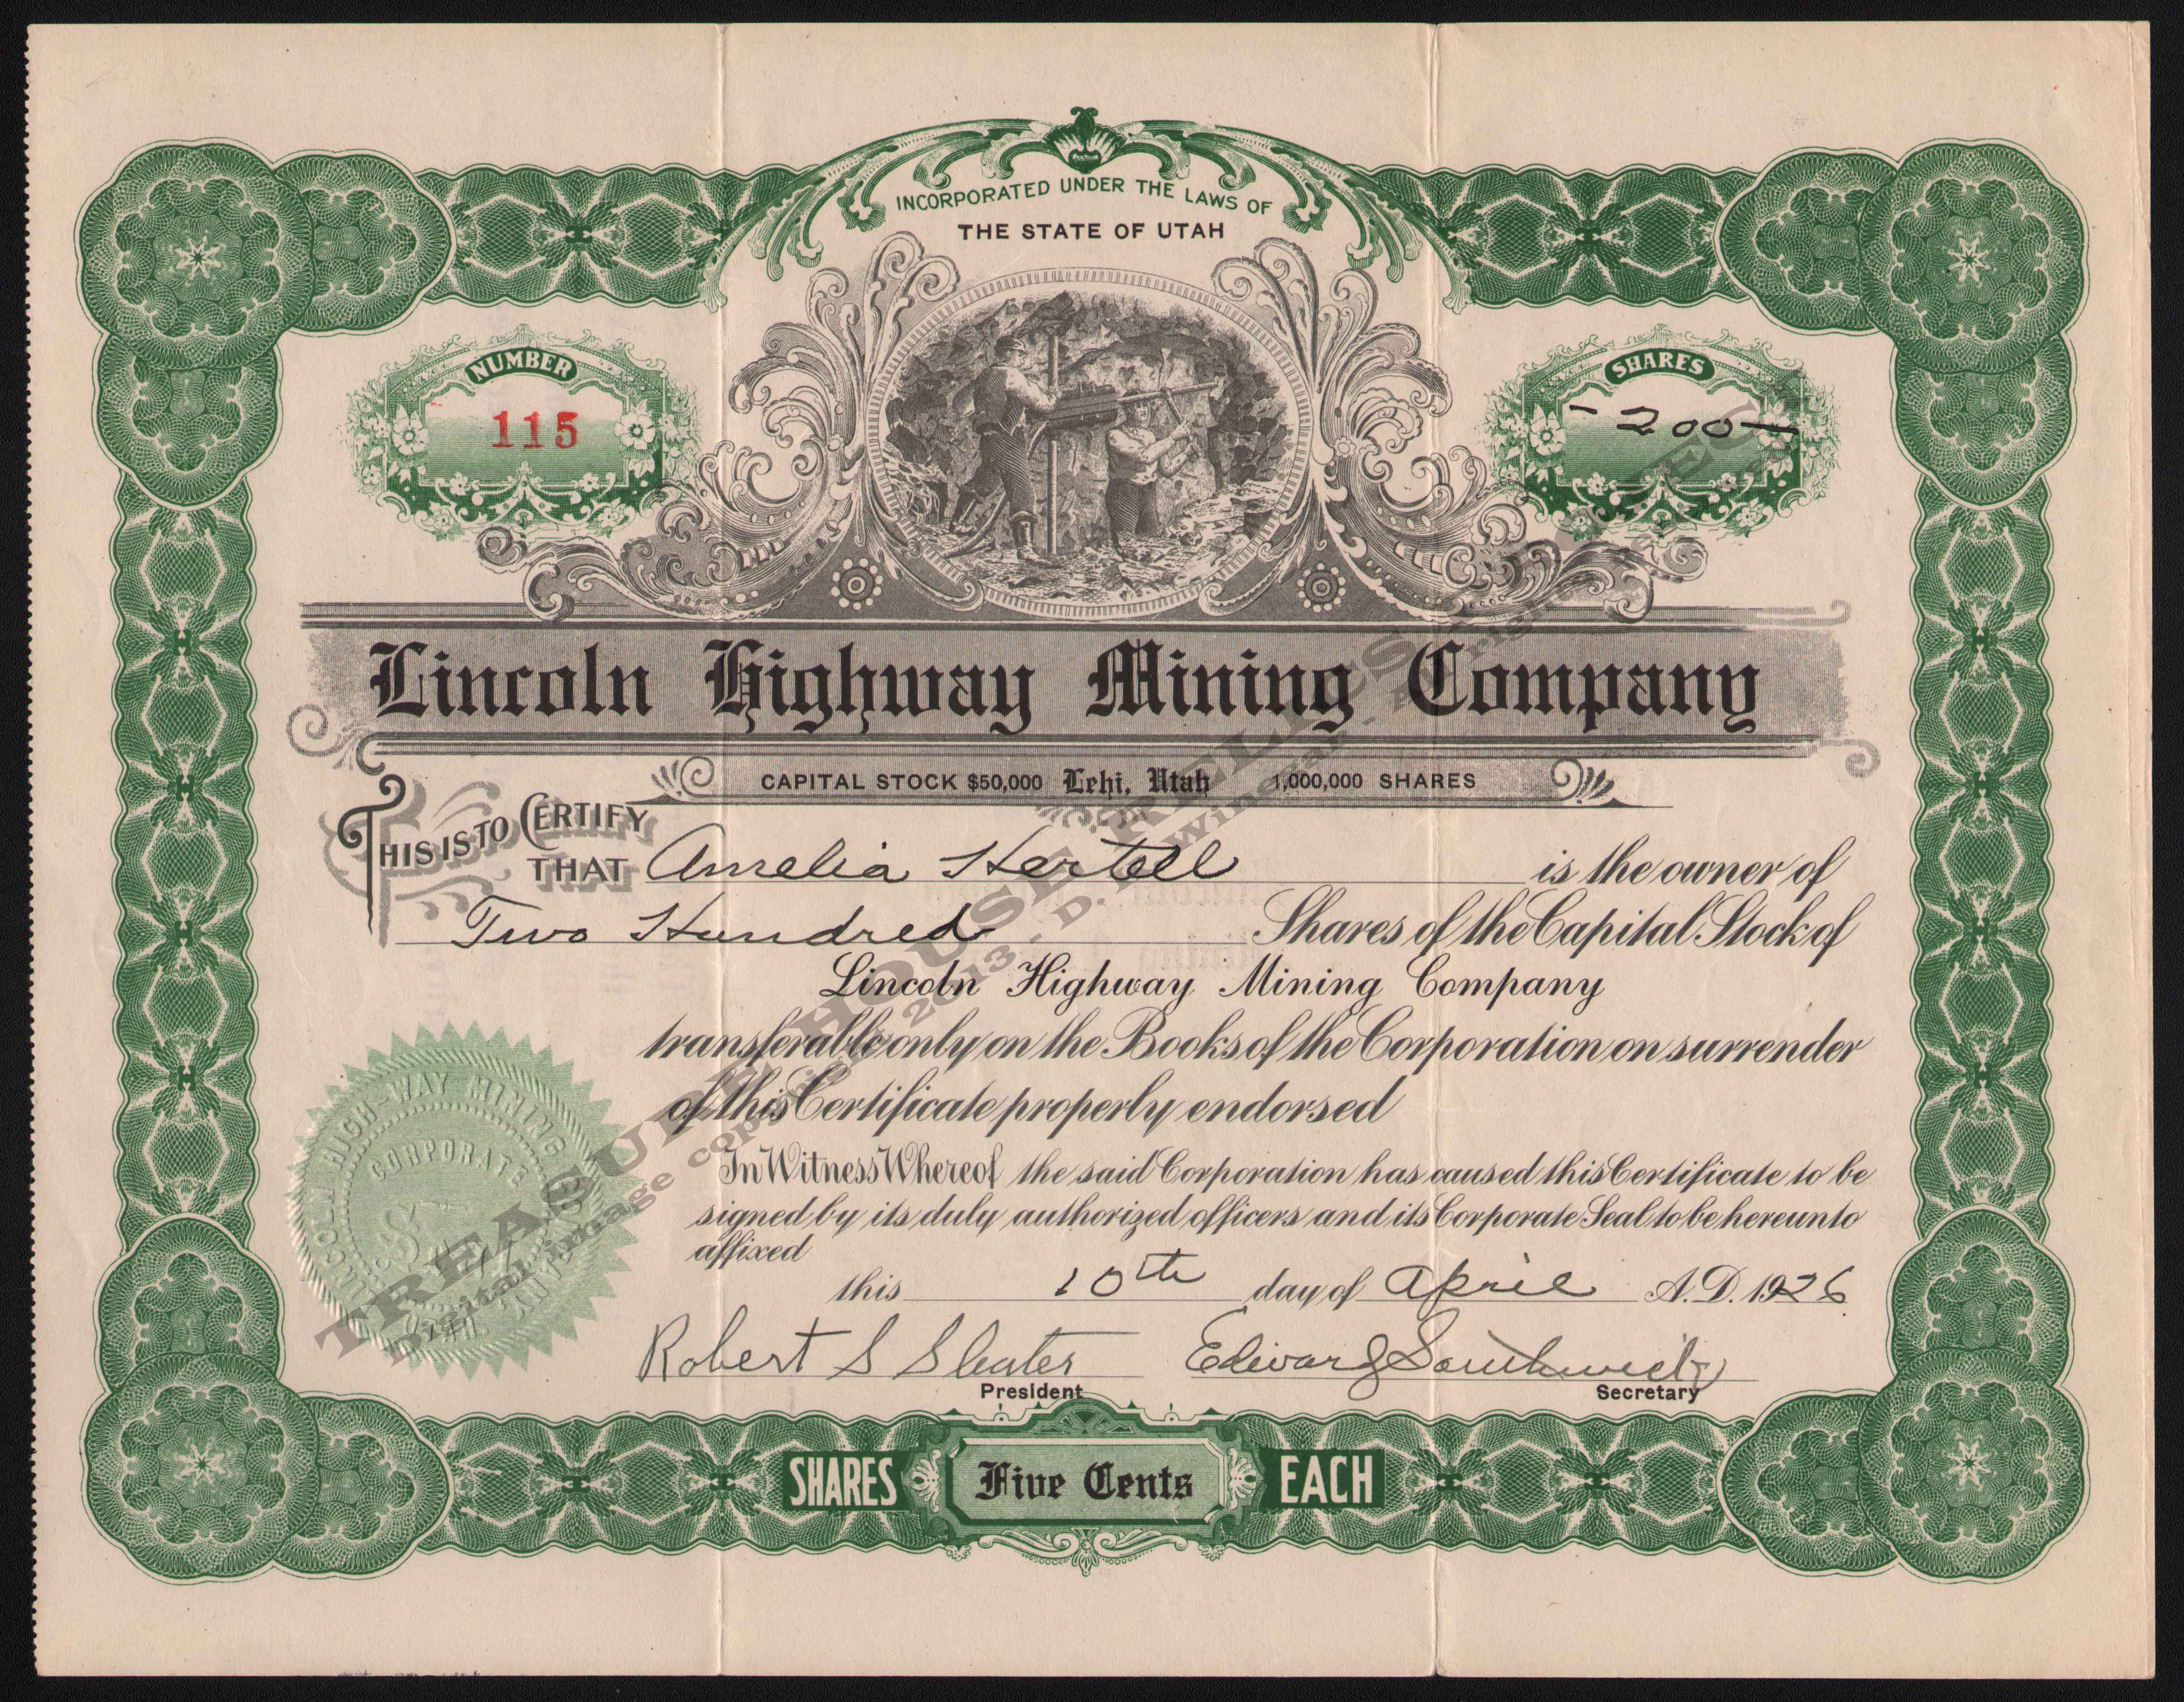 INCORPORATED UNDER THE LAWS OF
THE STATE OF UTAH
NUMBER
115
SHARES
- 200 -
Lincoln Highway Mining Company
CAPITAL STOCK $50,000 Lehi, Utah 1,000,000 SHARES
THIS IS TO CERTIFY
THAT Amelia Hertell is the owner of
Two Hundred Shares of the Capital Stock of
Lincoln Highway Mining Company
transferable only on the Books of the Corporation on surrender
of this Certificate properly endorsed
In Witness Whereof the said Corporation has caused this Certificate to be
signed by its duly authorized officers and its Corporate Seal to be hereunto
affixed
this 10th day of April A.D. 1926
Robert S Slater Edward Southwick
President Secretary
SHARES Five Cents EACH
LINCOLN HIGH-WAY MINING
CORPORATE
TREASURE HOUSE RELICS
Digital image copyright 2013 - D.